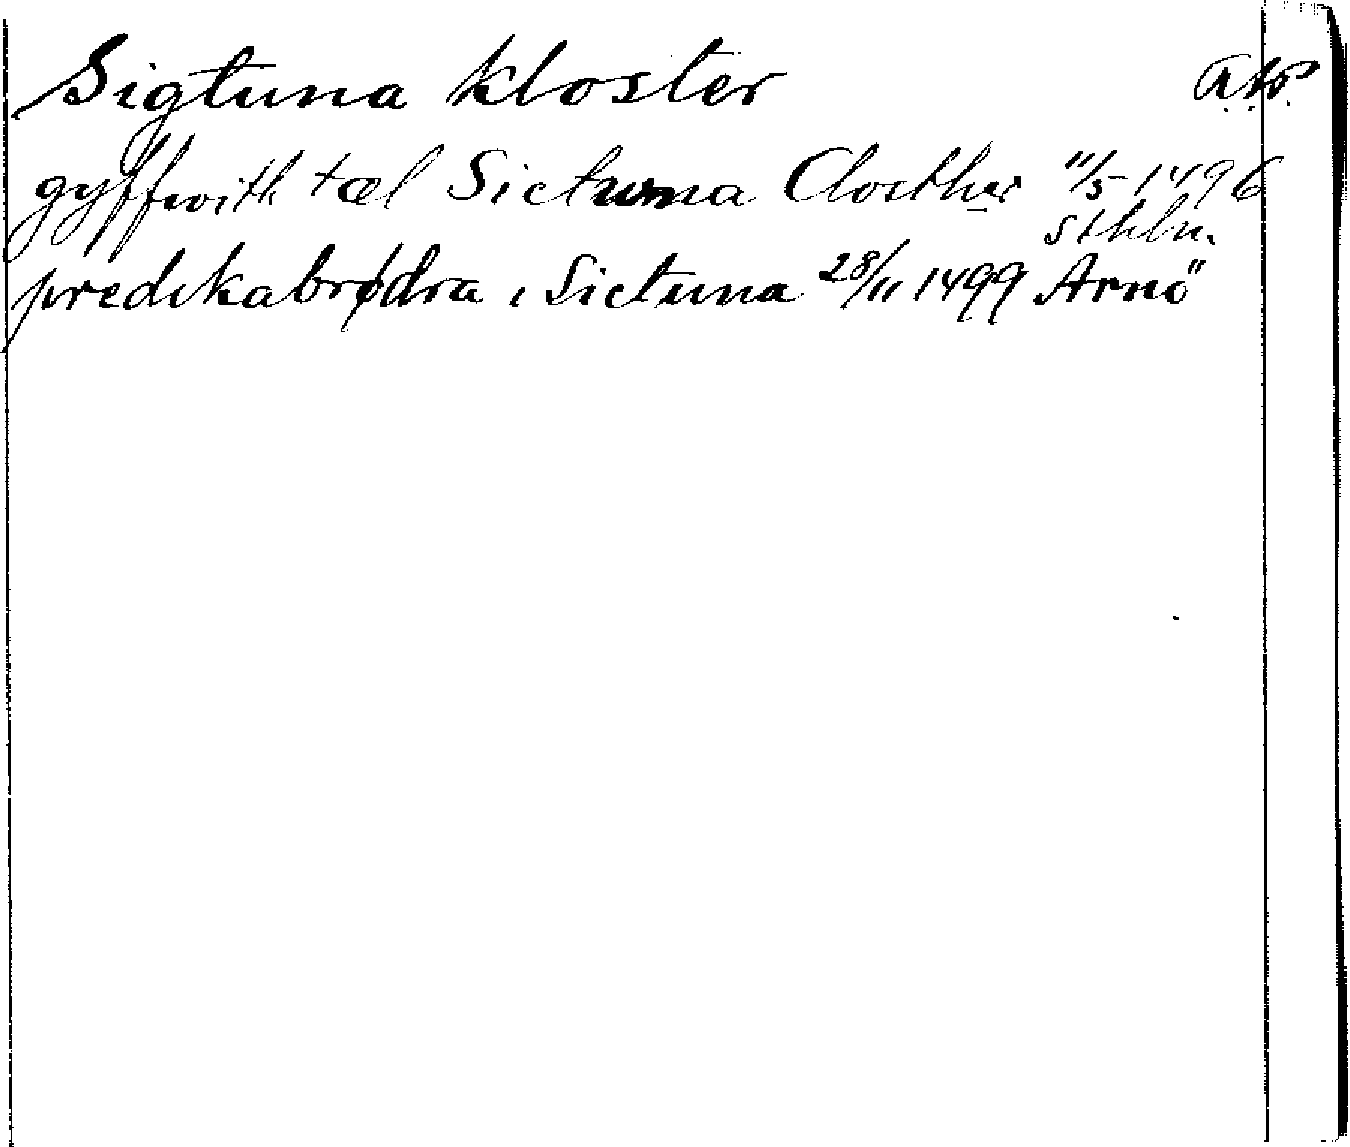 Sigtuna kloster
gyffwith tæl Sictuna Closther 11/5 1496
Sthlm.
predikabrødra i Sictuna 28/11 1499 Arnö